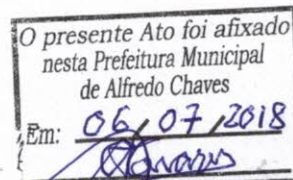 O presente Ato foi afixado
nesta Prefeitura Municipal
de Alfredo Chaves
Em: 06/07/2018